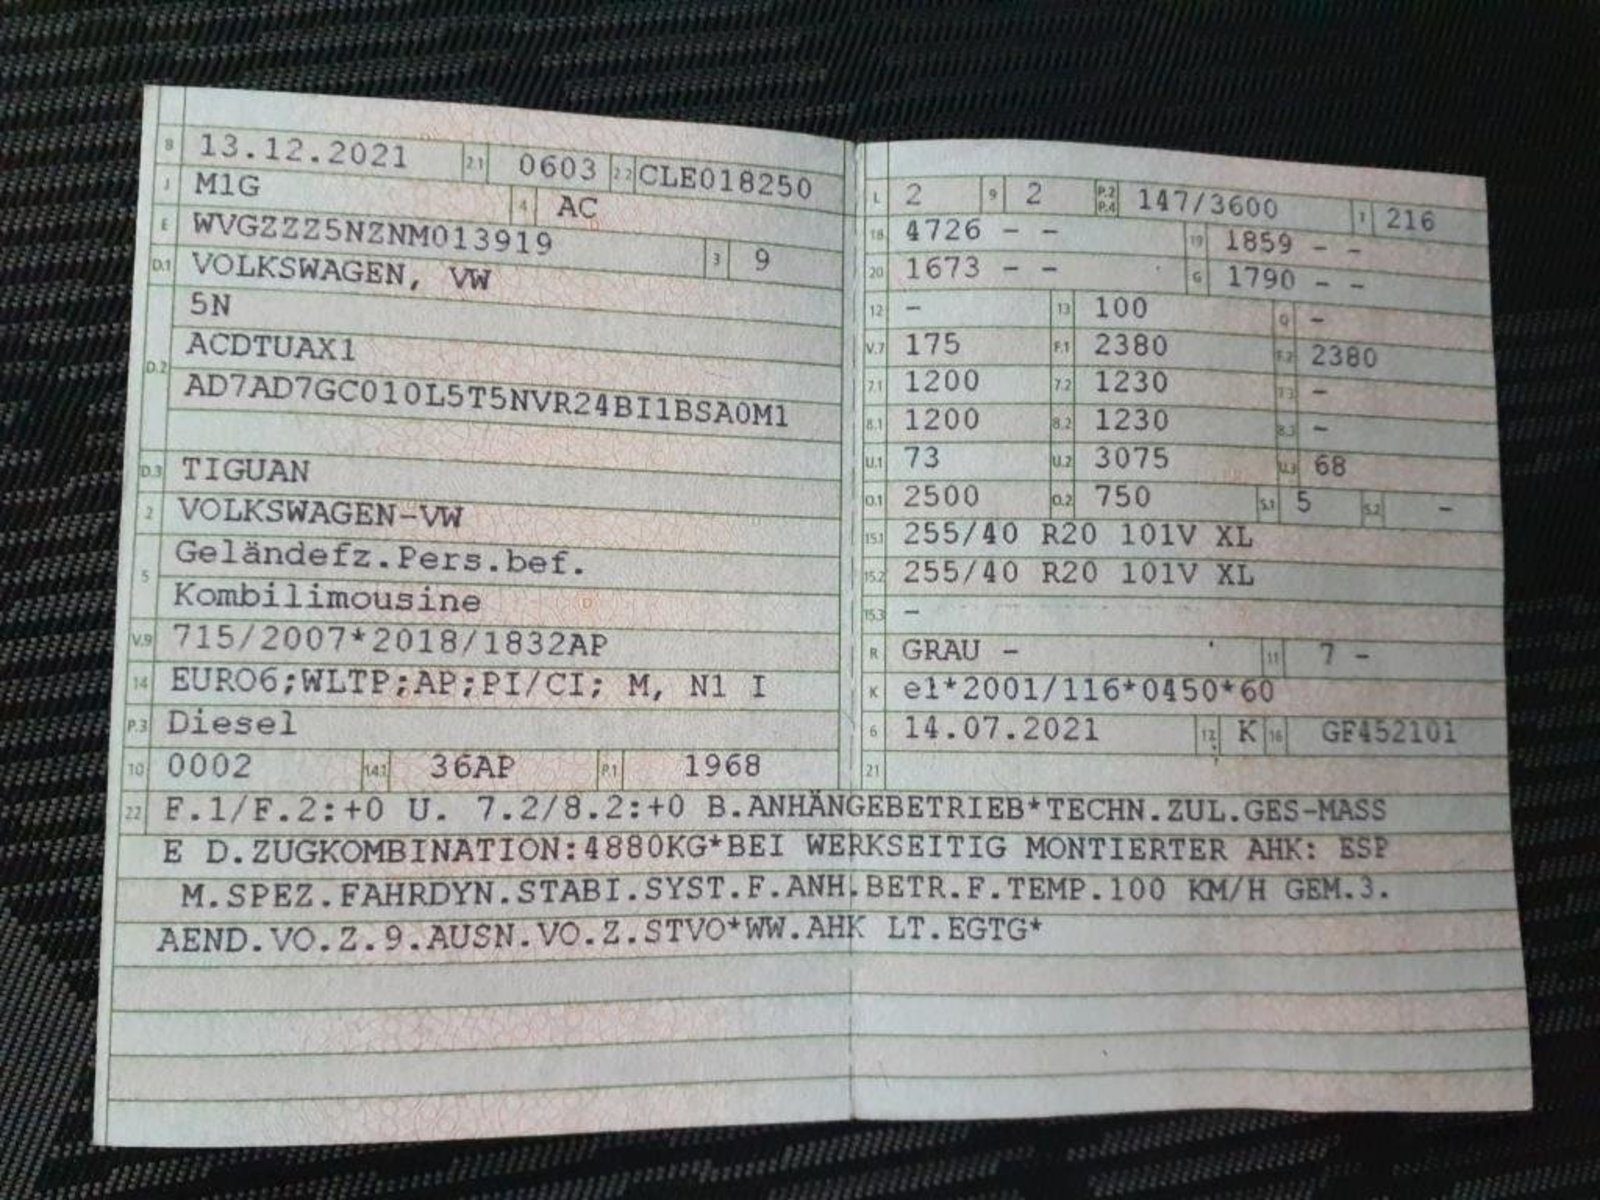 B 13.12.2021 2.1 0603 2.2 CLE018250
J M1G 4 AC
E WVGZZZ5NZNM013919 3 9
D.1 VOLKSWAGEN, VW
5N
D.2 ACDTUAX1
AD7AD7GC010L5T5NVR24BI1BSA0M1
D.3 TIGUAN
2 VOLKSWAGEN-VW
5 Geländefz.Pers.bef.
Kombilimousine
V.9 715/2007*2018/1832AP
14 EURO6;WLTP;AP;PI/CI; M, N1 I
P.3 Diesel
10 0002 14.1 36AP P.1 1968
L 2 9 2 P.2 P.4 147/3600 T 216
18 4726 - - 19 1859 - -
20 1673 - - G 1790 - -
12 - 13 100 Q -
V.7 175 F.1 2380 F.2 2380
7.1 1200 7.2 1230 7.3 -
8.1 1200 8.2 1230 8.3 -
U.1 73 U.2 3075 U.3 68
O.1 2500 O.2 750 S.1 5 S.2 -
15.1 255/40 R20 101V XL
15.2 255/40 R20 101V XL
15.3 -
R GRAU - 11 7 -
K e1*2001/116*0450*60
6 14.07.2021 17 K 16 GF452101
21
22 F.1/F.2:+0 U. 7.2/8.2:+0 B.ANHÄNGEBETRIEB*TECHN.ZUL.GES-MASS
E D.ZUGKOMBINATION:4880KG*BEI WERKSEITIG MONTIERTER AHK: ESP
M.SPEZ.FAHRDYN.STABI.SYST.F.ANH.BETR.F.TEMP.100 KM/H GEM.3.
AEND.VO.Z.9.AUSN.VO.Z.STVO*WW.AHK LT.EGTG*